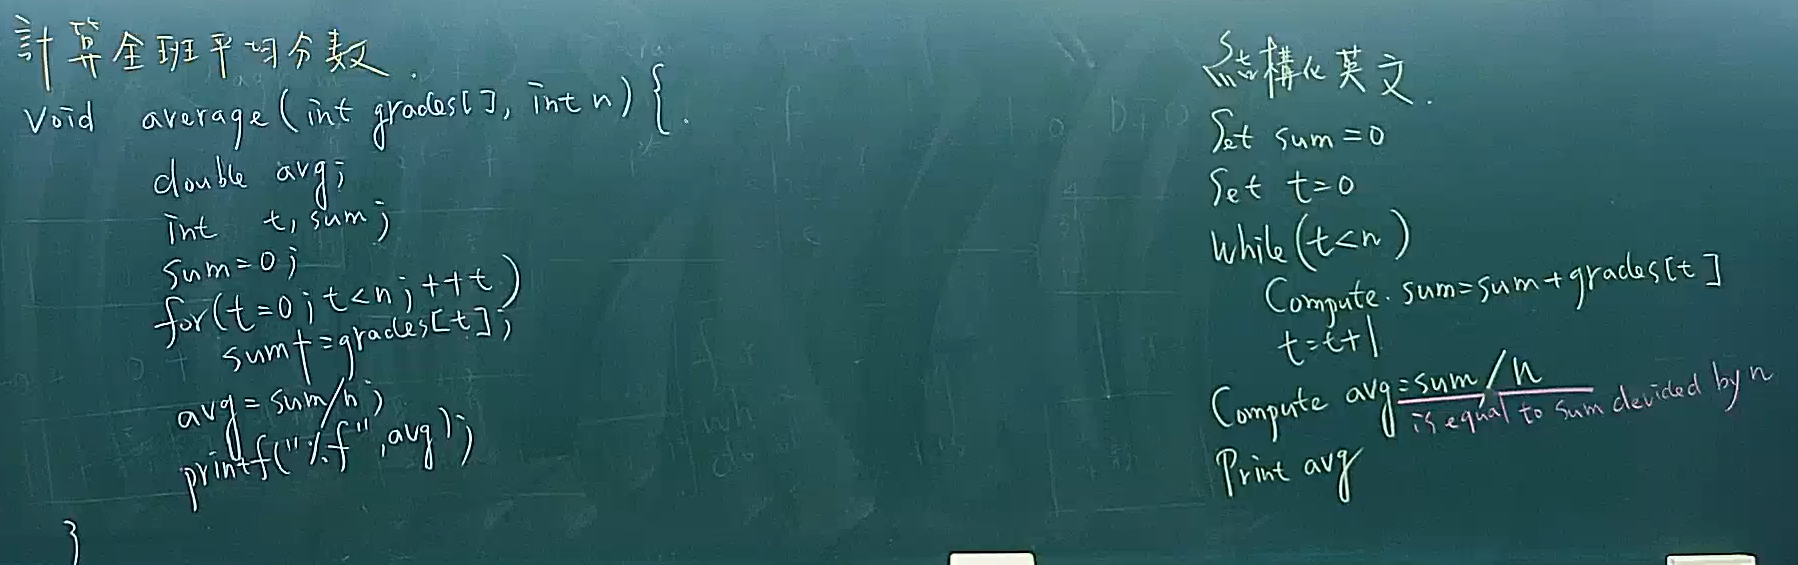 計算全班平均分数.
void average(int grades[], int n){
double avg;
int t, sum;
sum=0;
for(t=0; t<n; ++t)
sum+=grades[t];
avg=sum/n;
printf("%f",avg);
}
結構化英文.
Set sum=0
Set t=0
While(t<n)
Compute. sum=sum+grades[t]
t=t+1
Compute avg=sum/n
is equal to sum devided by n
Print avg